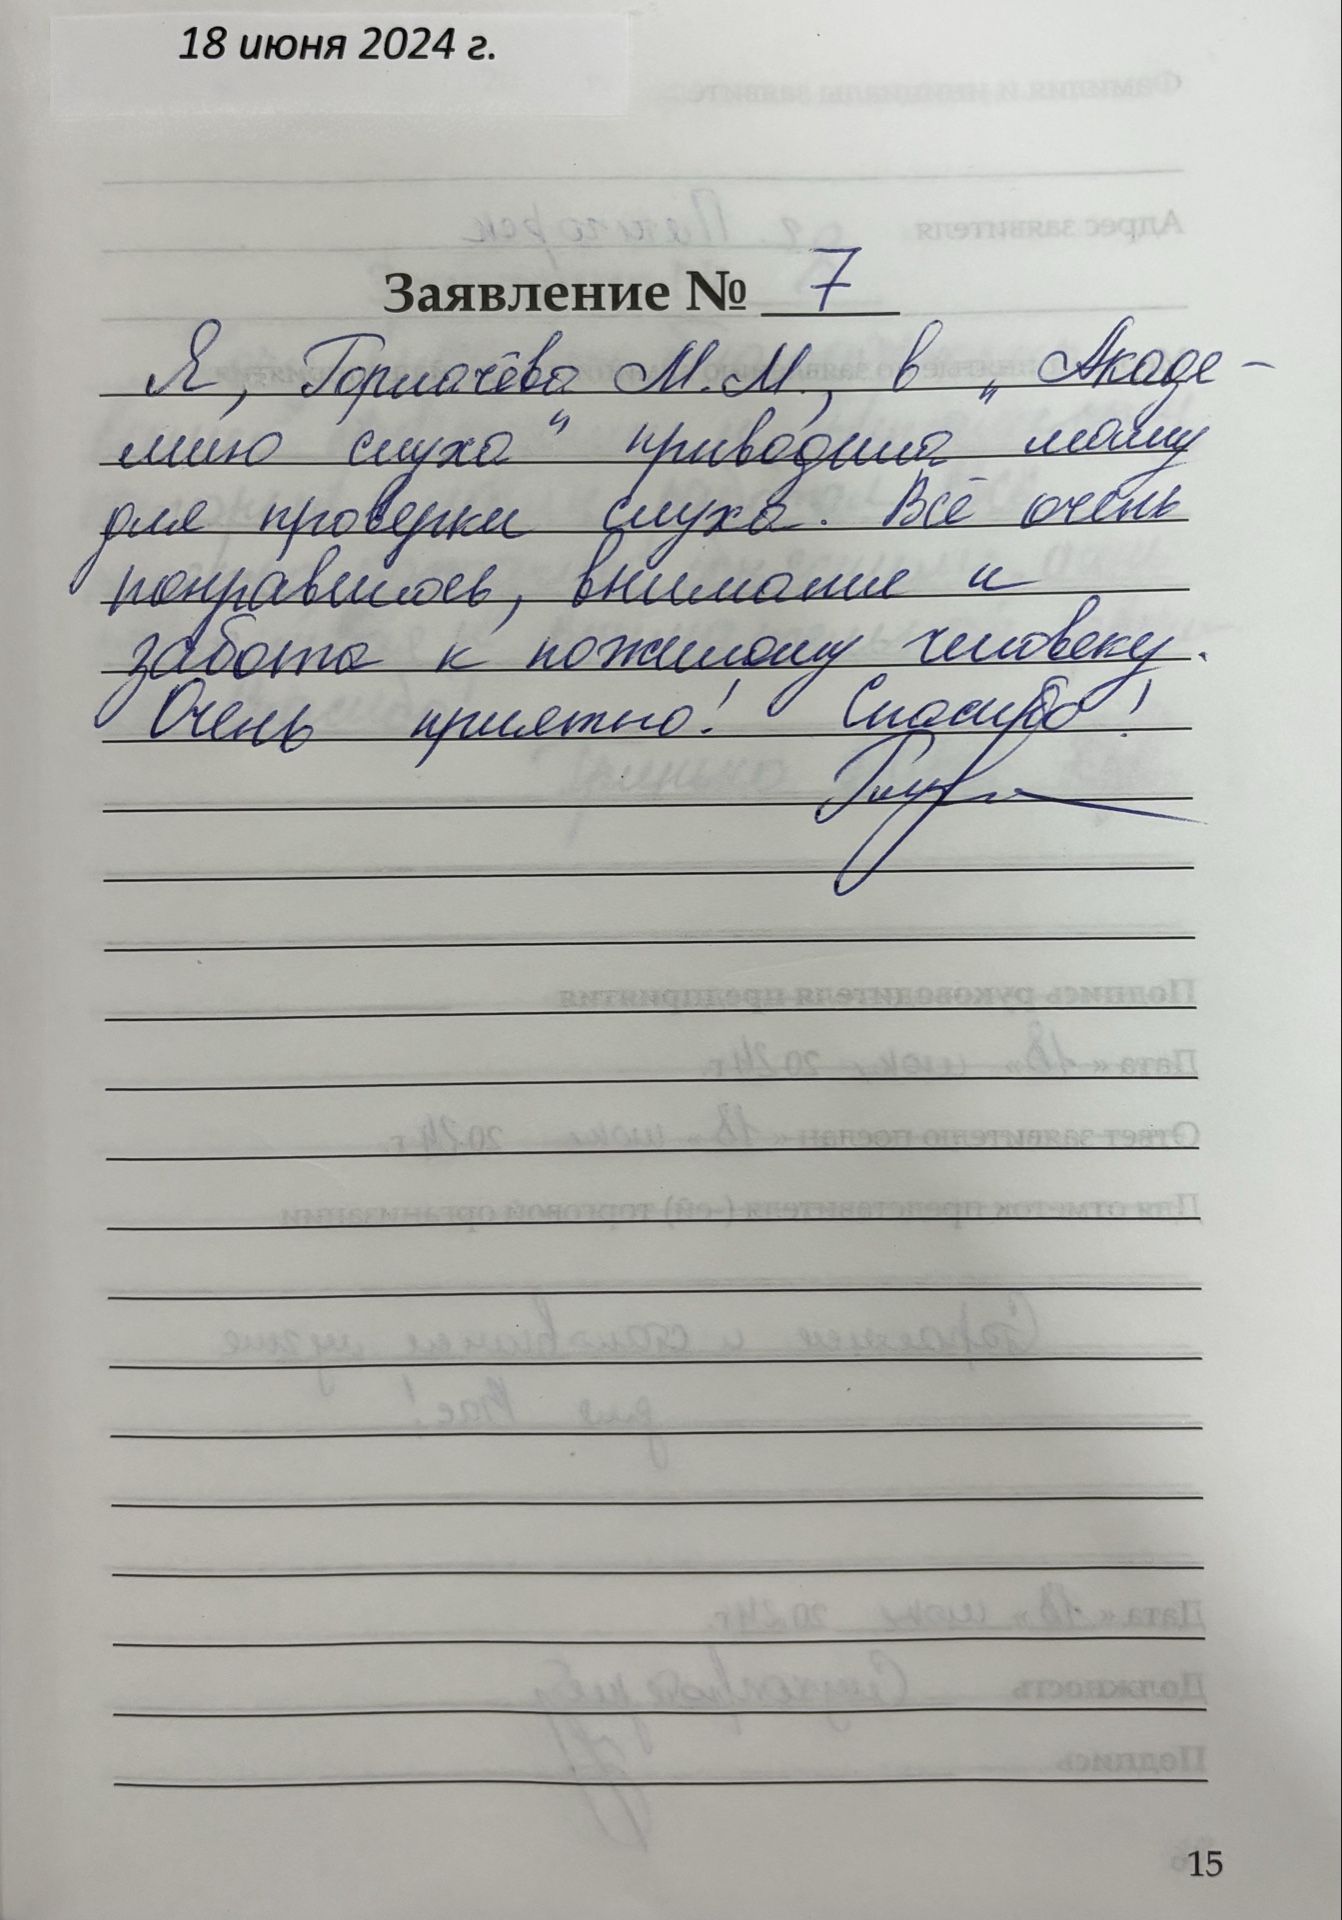 18 июня 2024 г.
Заявление № 7
Я, Горлачёва М.М., в "Акаде-
мию слуха" приводила маму
для проверки слуха. Всё очень
понравилось, внимание и
забота к пожилому человеку.
Очень приятно! Спасибо!
15